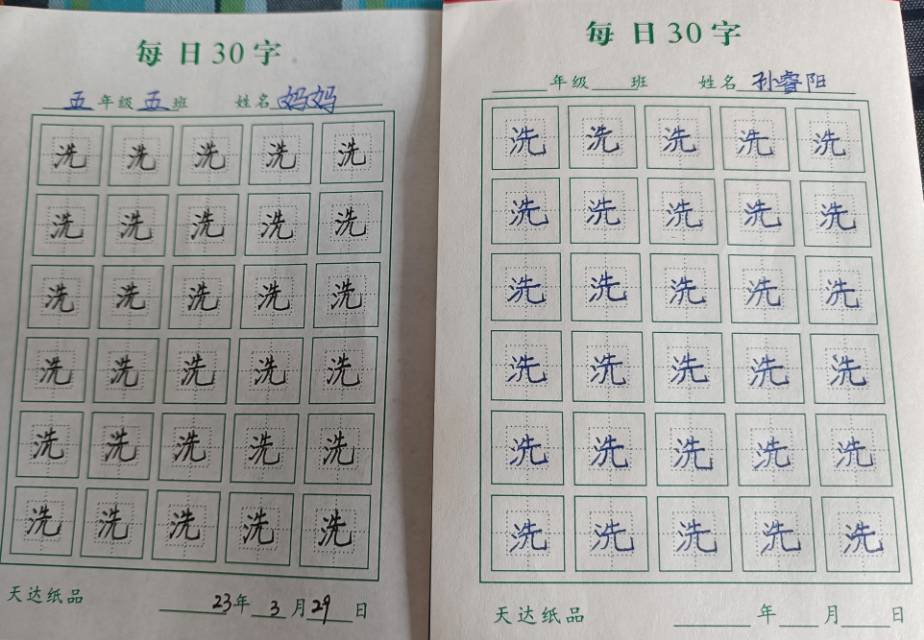 每日30字
五年级五班 姓名妈妈
洗洗洗洗洗
洗洗洗洗洗
洗洗洗洗洗
洗洗洗洗洗
洗洗洗洗洗
洗洗洗洗洗
天达纸品 23年3月29日
每日30字
年级 班 姓名孙睿阳
洗洗洗洗洗
洗洗洗洗洗
洗洗洗洗洗
洗洗洗洗洗
洗洗洗洗洗
洗洗洗洗洗
天达纸品 年 月 日